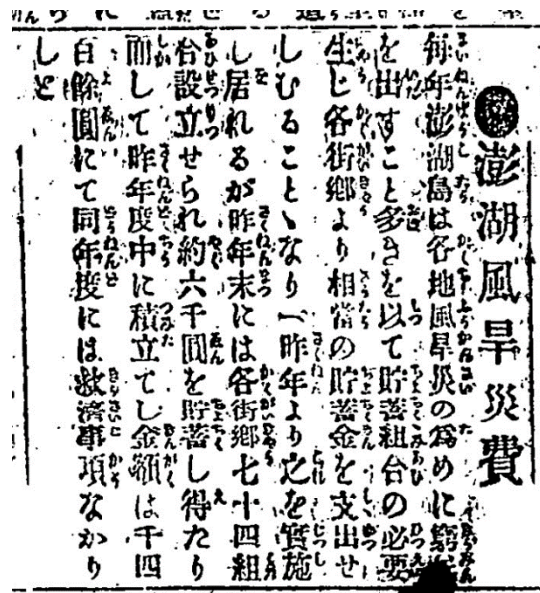 澎湖風旱災費
毎年澎湖島は各地風旱災の爲めに窮
を出すこと多きを以て貯蓄組合の必要
生じ各街鄕より相當の貯蓄金を支出せ
しむることゝなり一昨年より之を實施
し居れるが昨年末には各街鄕七十四組
合設立せられ約六千圓を貯蓄し得たり
而して昨年度中に積立てし金額は千四
百餘圓にて同年度には救濟事項なかり
しと